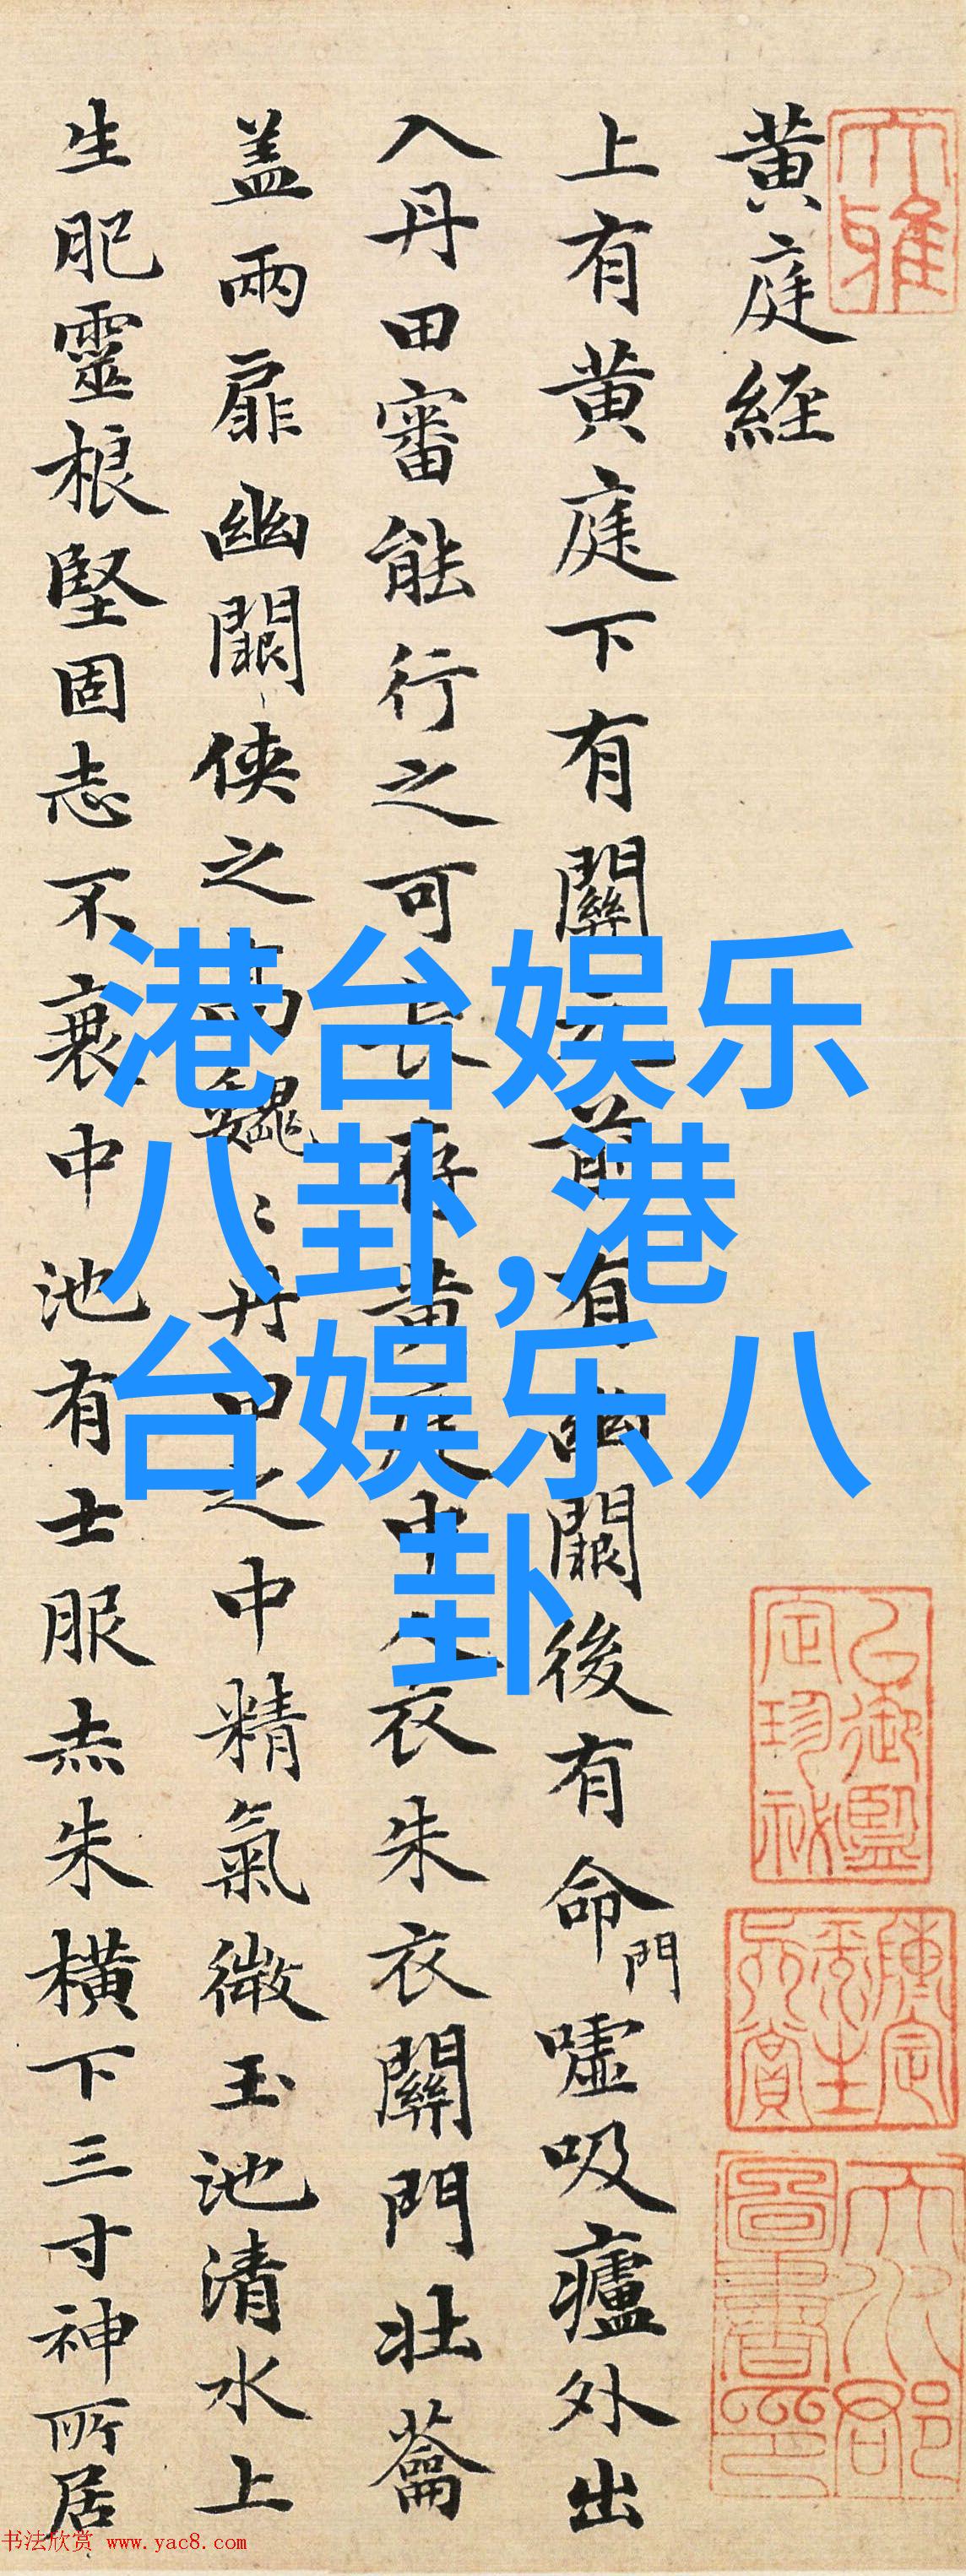 大雅
黄庭経
上有黄庭下有關元前有幽闕後有命門嘘吸廬外出
入丹田審能行之可長存黄庭中人衣朱衣關門壮蘥
盖兩扉幽闕侠之高巍〻丹田之中精氣微玉池清水上
生肥靈根堅固志不衰中池有士服赤朱横下三寸神所居
港台娱乐
八卦,港
台娱乐八
卦
书法欣赏 www.yac8.com